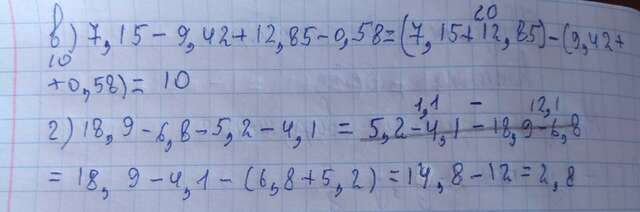 20
в) 7,15-9,42+12,85-0,58=(7,15+12,85)-(9,42+
10
+0,58)= 10
1,1 - 12,1
г) 18,9-6,8-5,2-4,1 = 5,2-4,1-18,9-6,8
= 18,9-4,1-(6,8+5,2)=14,8-12=2,8